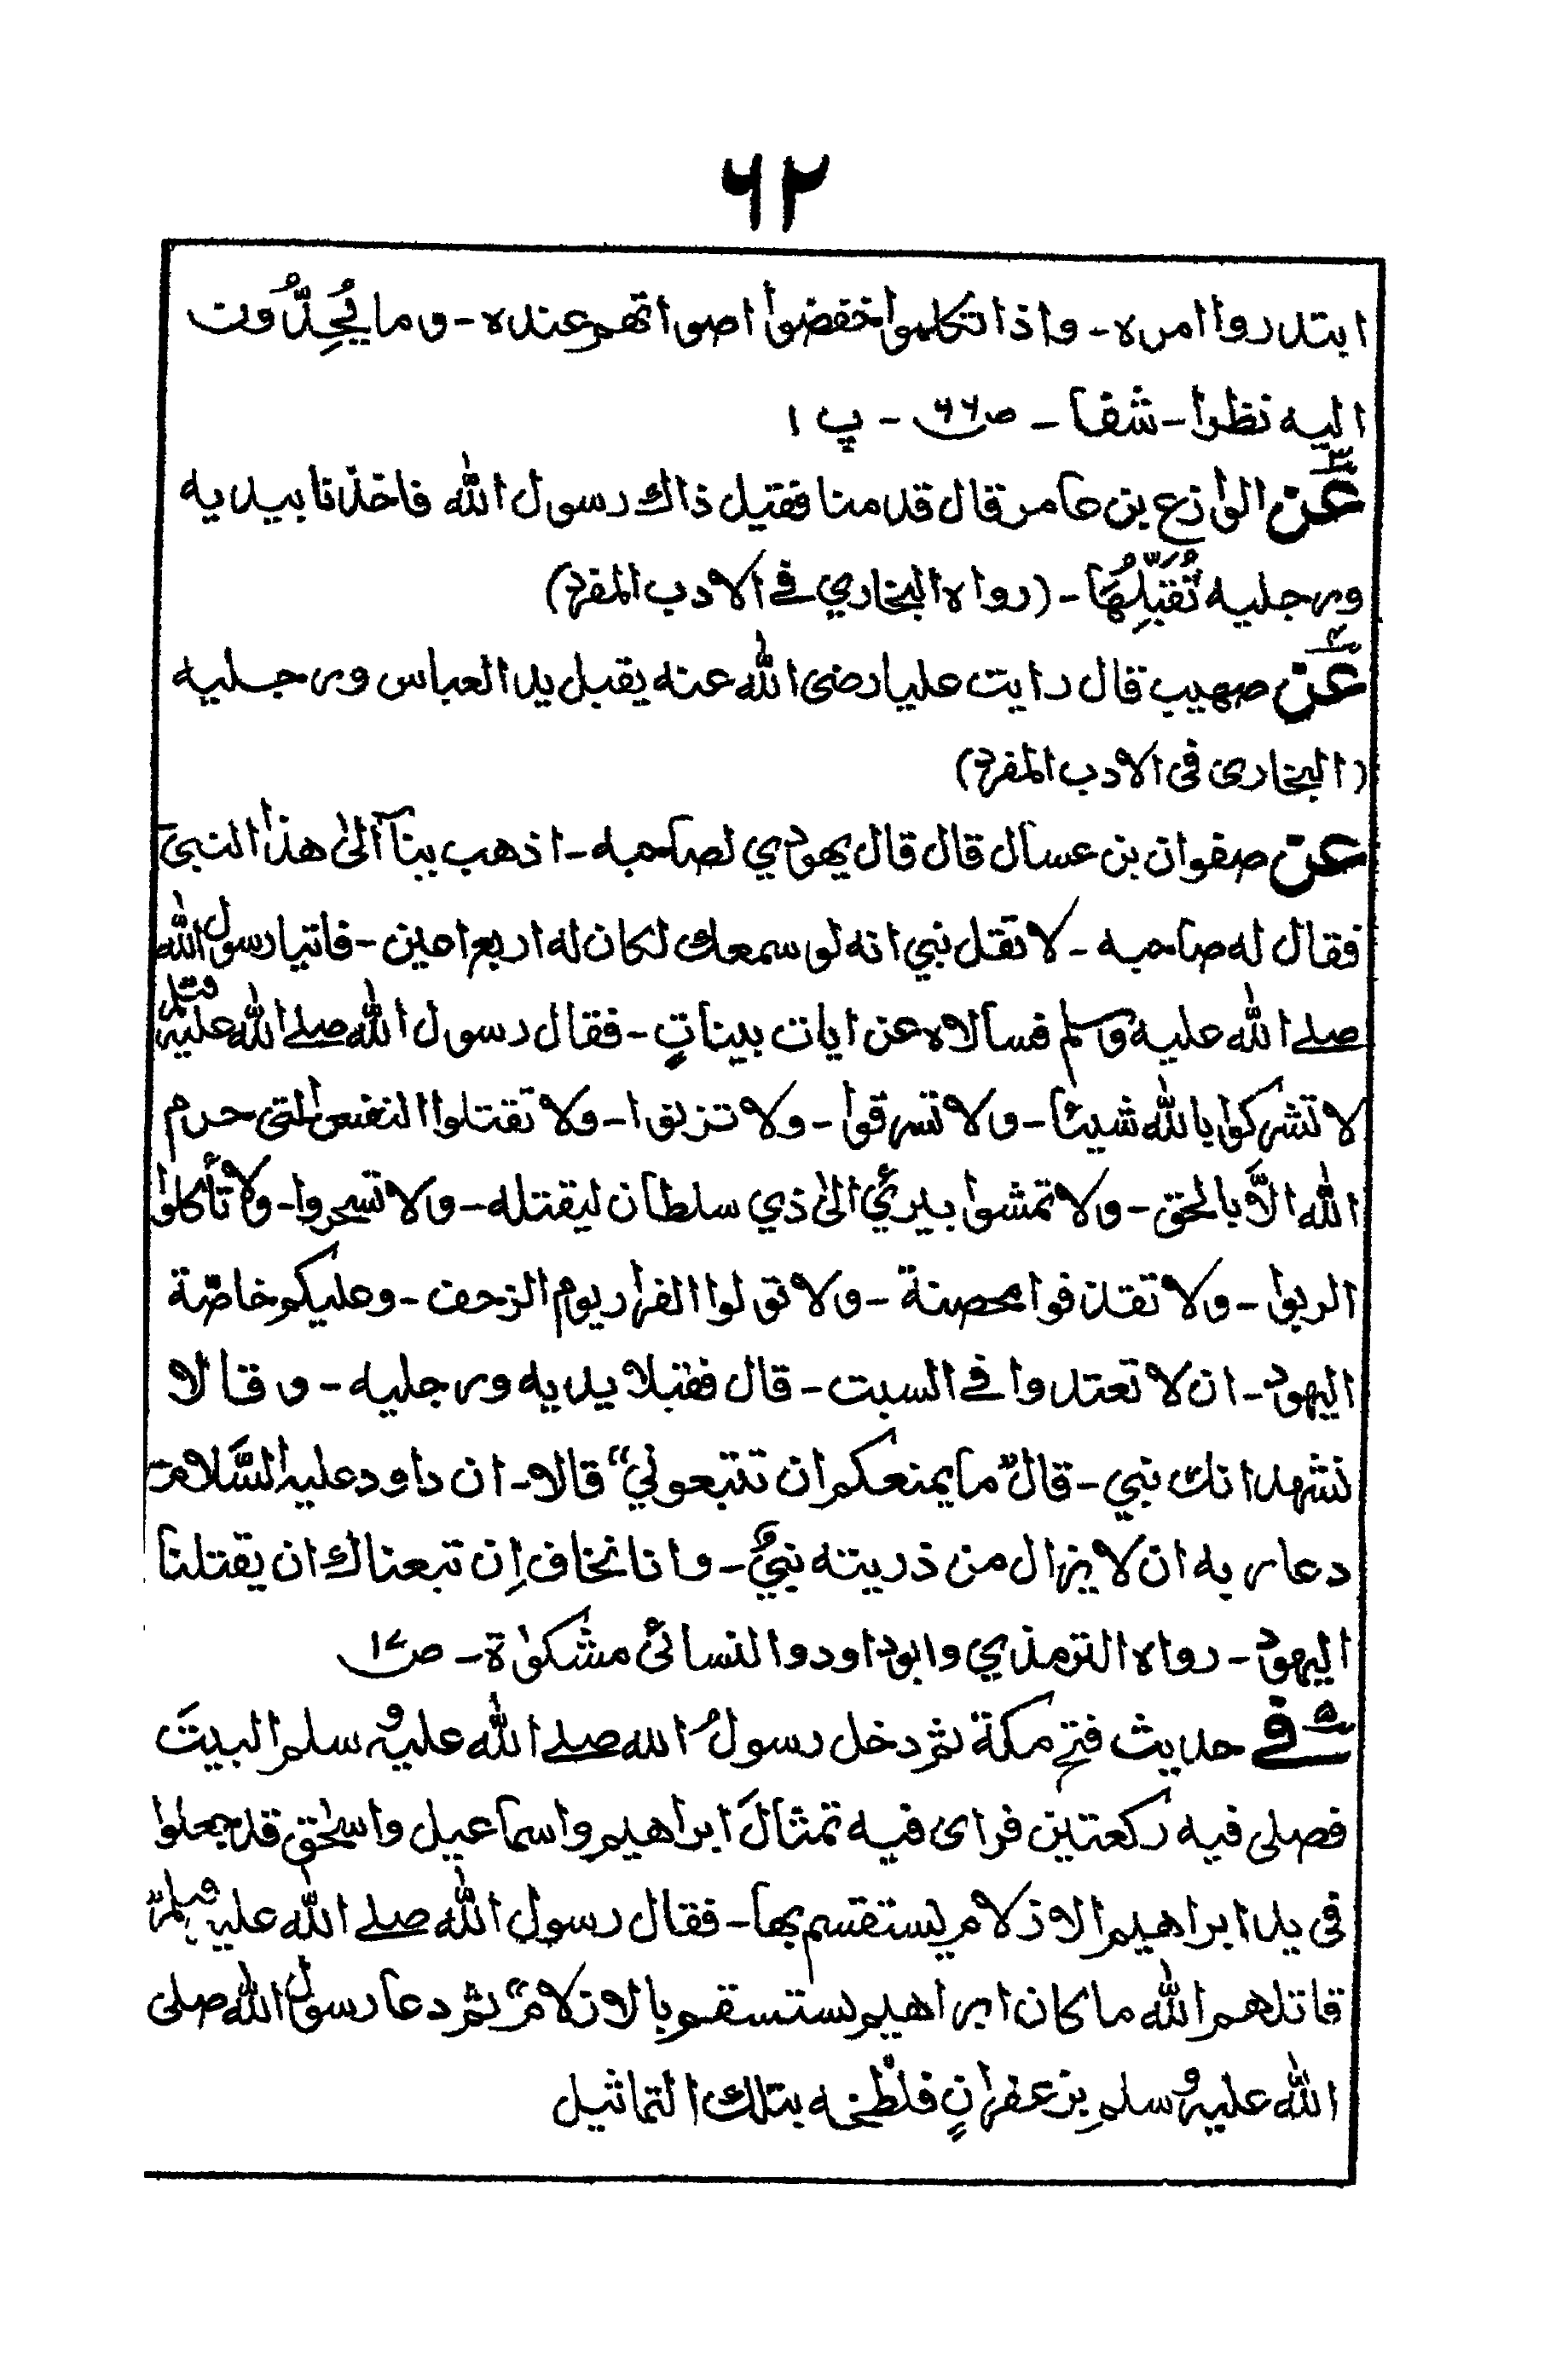 ۶۲
ابتدروا امره - واذا تكلموا خفضوا اصواتهم عنده - وما يُحِدُّون
اليه نظرا - شفا - ص ۶۶ - پ ۱
۳ عن الوازع بن عامر قال قدمنا فقيل ذاك رسول الله فاخذنا بيديه
ورجليه نُقَبِّلُهَا - (رواه البخاري في الادب المفرد)
۴ عن صهيب قال رايت عليا رضى الله عنه يقبل يد العباس ورجليه
(البخارى فى الادب المفرد)
عن صفوان بن عسال قال قال يهودي لصاحبه - اذهب بنا الىٰ هذا النبى
فقال له صاحبه - لا تقل نبي انه لو سمعك لكان له اربع اعين - فاتيا رسول الله
صلے الله عليه وسلم فسالاه عن ايات بيناتٍ - فقال رسول الله صلے الله عليه وسلم
لا تشركوا بالله شيئا - ولا تسرقوا - ولا تزنوا - ولا تقتلوا النفس التى حرم
الله الّا بالحق - ولا تمشوا ببرئ الىٰ ذي سلطان ليقتله - ولا تسحروا - ولا تأكلوا
الربوا - ولا تقذفوا محصنة - ولا تولوا الفرار يوم الزحف - وعليكم خاصّة
اليهود - ان لا تعتدوا في السبت - قال فقبلا يديه ورجليه - وقالا
نشهد انك نبي - قال "ما يمنعكم ان تتبعوني" قالا - ان داود عليه السَّلام
دعا ربه ان لا يزال من ذريته نبيٌّ - وانا نخاف اِن تبعناك ان يقتلنا
اليهود - رواه الترمذي وابوداود والنسائى مشكوٰة - ص ۱۷
۵ في حديث فتح مكة ثم دخل رسولُ الله صلے الله عليه وسلم البيتَ
فصلى فيه ركعتين فراى فيه تمثالَ ابراهيم واسماعيل واسحٰق قد جعلوا
فى يد ابراهيم الازلام يستقسم بها - فقال رسول الله صلے الله عليه وسلم "
قاتلهم الله ما كان ابراهيم يستسقم بالازلام" ثم دعا رسول الله صلى
الله عليه وسلم بزعفرانٍ فلطخه بتلك التماثيل